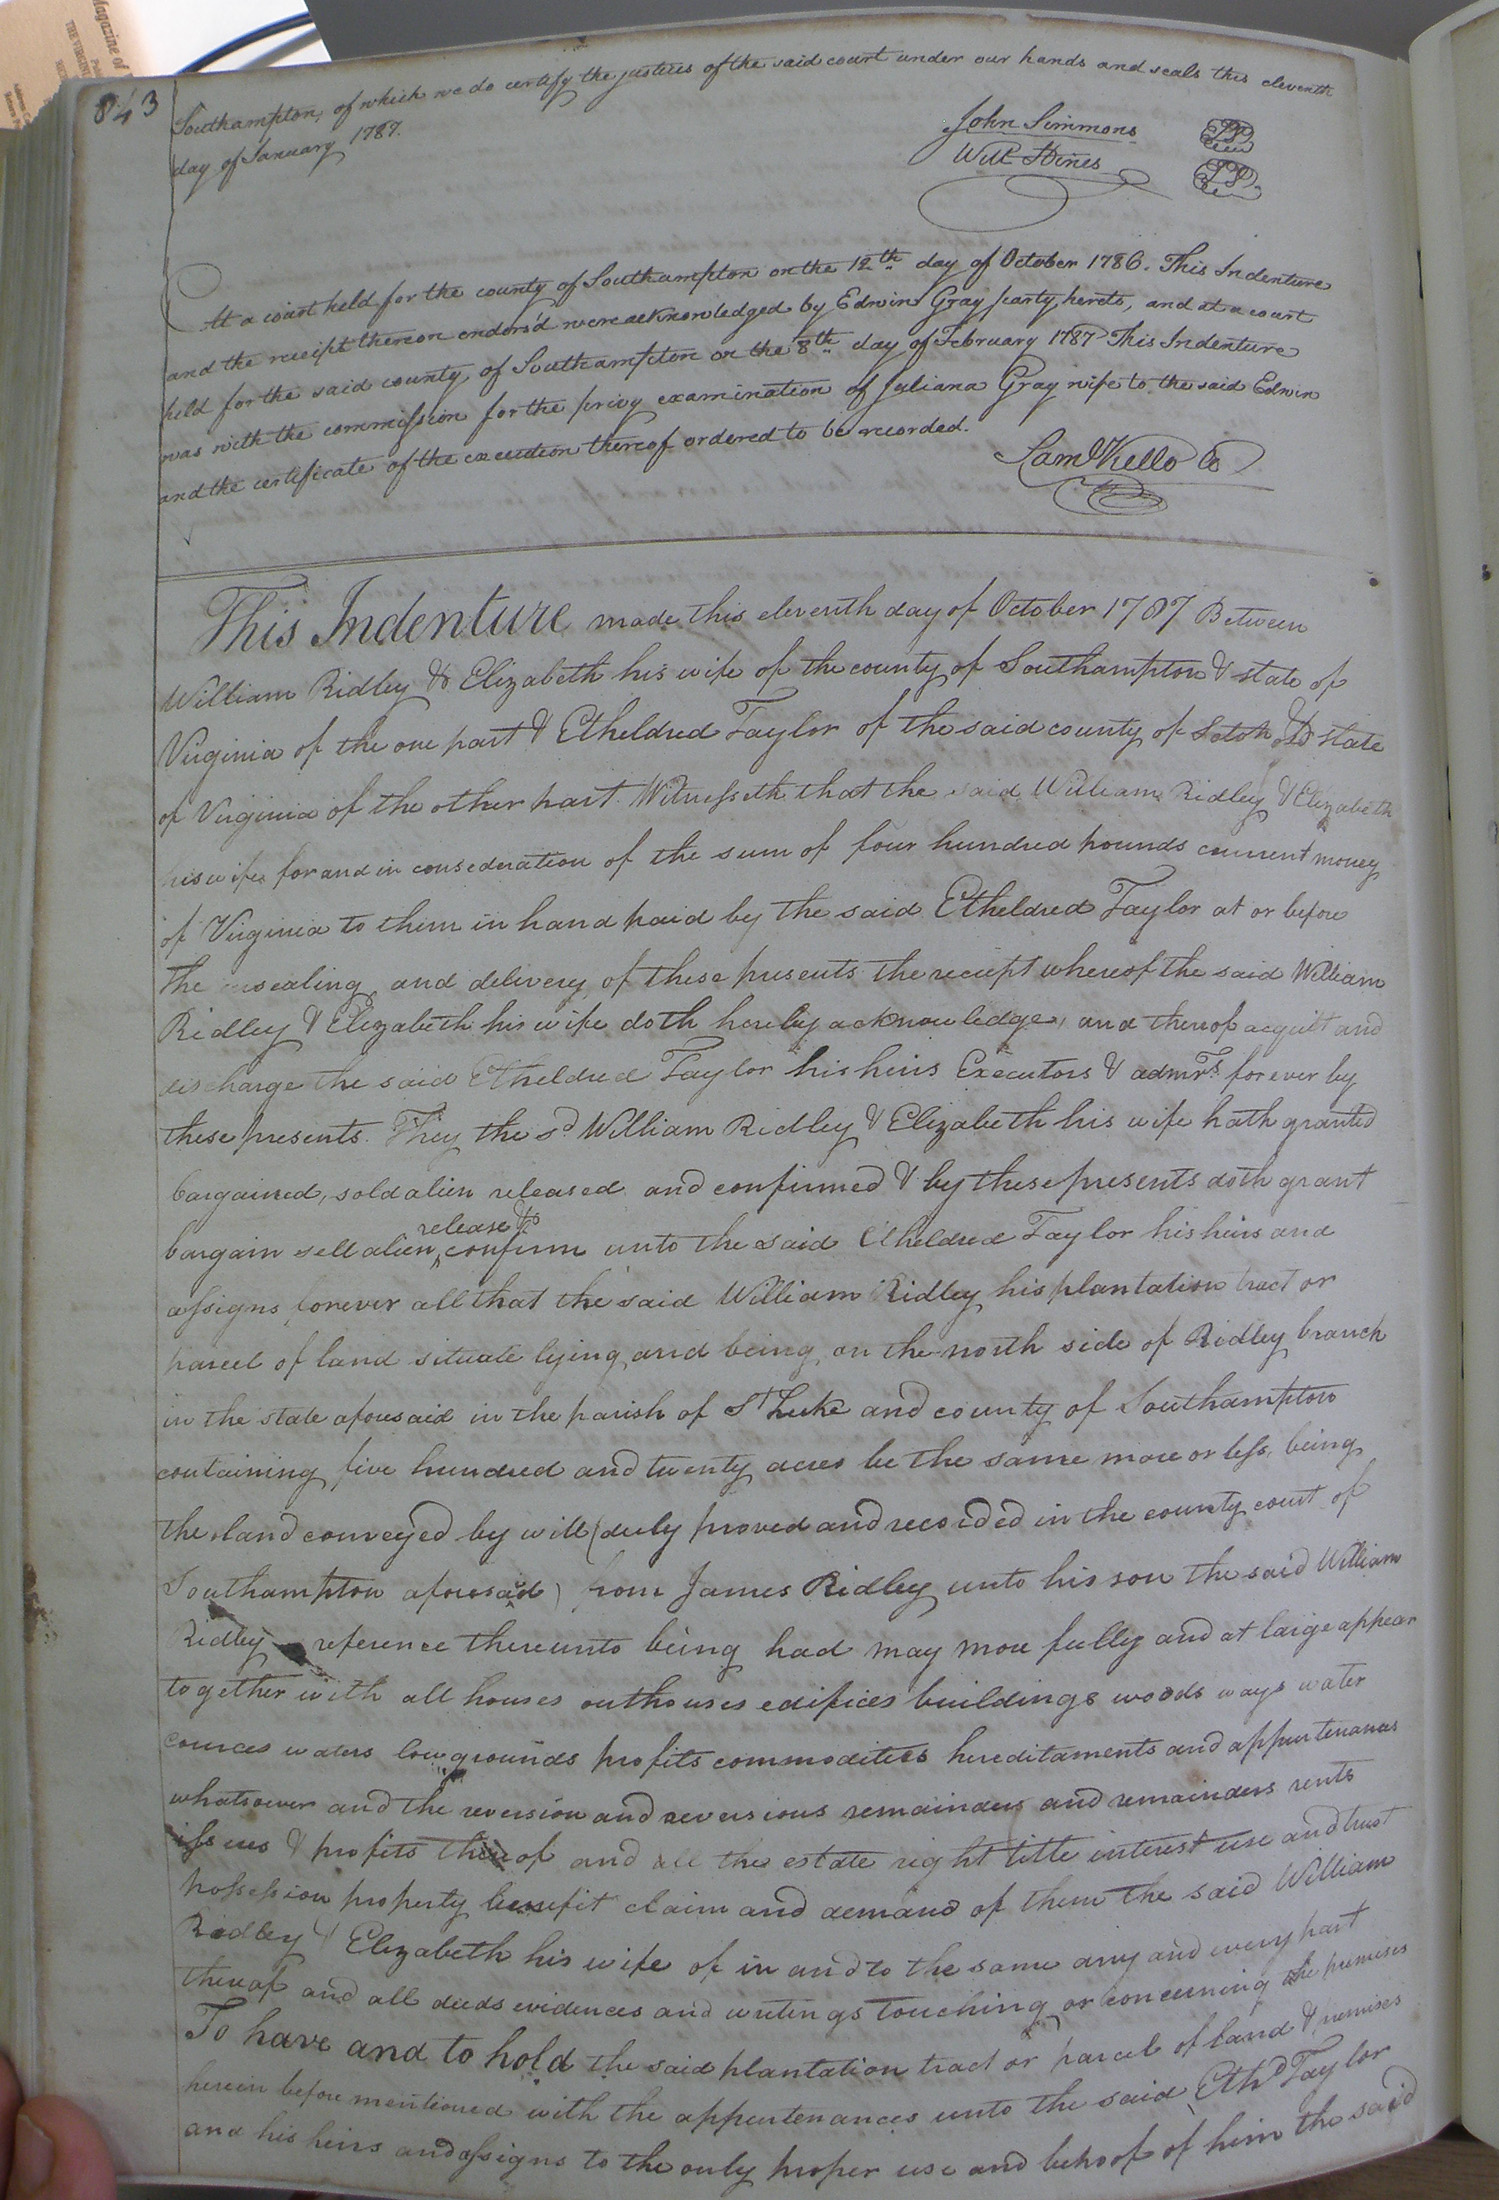 Magazine of
THE VIRGINI
843
Southampton, of which we do certify the justices of the said court under our hands and seals this eleventh
day of January 1787.
John Simmons
Will Hines
At a court held for the county of Southampton on the 12th day of October 1786. This Indenture
and the receipt thereon endors'd were acknowledged by Edwin Gray party hereto, and at a court
held for the said county of Southampton on the 8th day of February 1787 This Indenture
was with the commission for the privy examination of Juliana Gray wife to the said Edwin
and the certificate of the execution thereof ordered to be recorded.
Saml Kello Cc
This Indenture made this eleventh day of October 1787 Between
William Ridley & Elizabeth his wife of the county of Southampton & state of
Virginia of the one part & Etheldred Taylor of the said county of Soton & state
of Virginia of the other part Witnesseth that the said William Ridley & Elizabeth
his wife for and in consederation of the sum of four hundred pounds current money
of Virginia to them in hand paid by the said Etheldred Taylor at or before
the ensealing and delivery of these presents the reciept whereof the said William
Ridley & Elizabeth his wife doth hereby acknowledge, and thereof acquitt and
discharge the said Etheldred Taylor his heirs Executors & admrs. forever by
these presents. They the sd William Ridley & Elizabeth his wife hath granted
bargained, sold alien released and confirmed & by these presents doth grant
bargain sell alien release & confirm unto the said Etheldred Taylor his heirs and
assigns forever all that the said William Ridley his plantation tract or
parcel of land situate lying and being on the north side of Ridley branch
in the state aforesaid in the parish of St Luke and county of Southampton
containing five hundred and twenty acres be the same more or less, being
the land conveyed by will (duly proved and recorded in the county court of
Southampton aforesaid) from James Ridley unto his son the said William
Ridley reference thereunto being had may more fully and at large appear
together with all houses outhouses edifices buildings woods ways water
cources waters lowgrounds profits commodities hereditaments and appurtenances
whatsoever and the reversion and reversions remainders and remainders rents
issues & profits thereof and all the estate right title interest use and trust
possession property benefit claim and demand of them the said William
Ridley & Elizabeth his wife of in and to the same any and every part
thereof and all deeds evidences and writings touching or concerning the premises
To have and to hold the said plantation tract or parcel of land & premises
herein before mentioned with the appurtenances unto the said Ethd Taylor
and his heirs and assigns to the only proper use and behoof of him the said